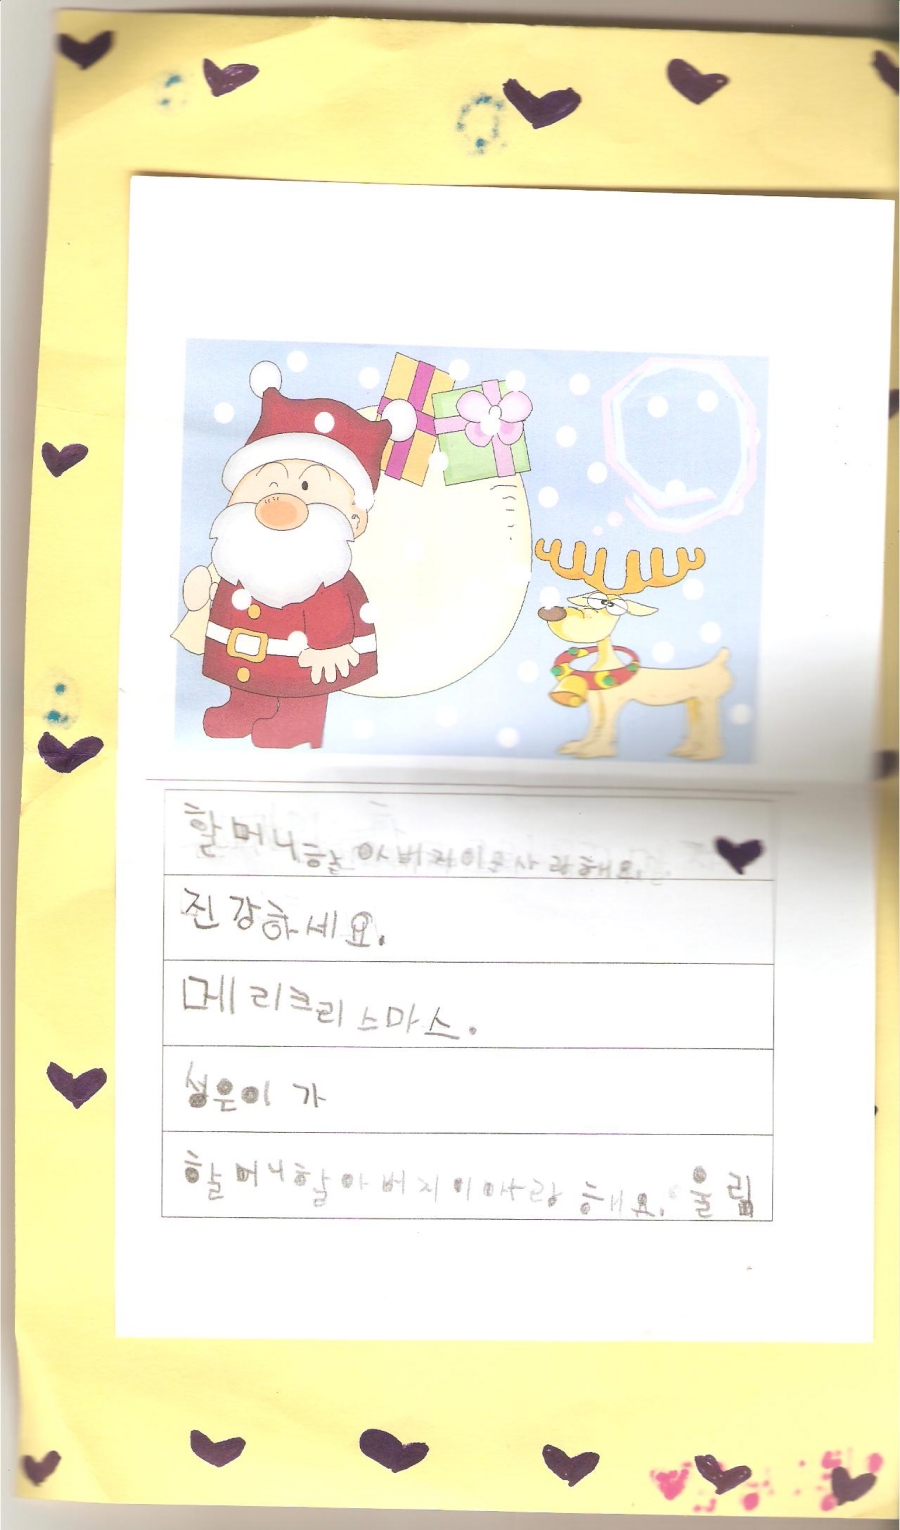 할머니할아버지이사랑해요.
진강하세요.
메리크리스마스.
성은이 가
할머니할아버지이사랑해요. 올림